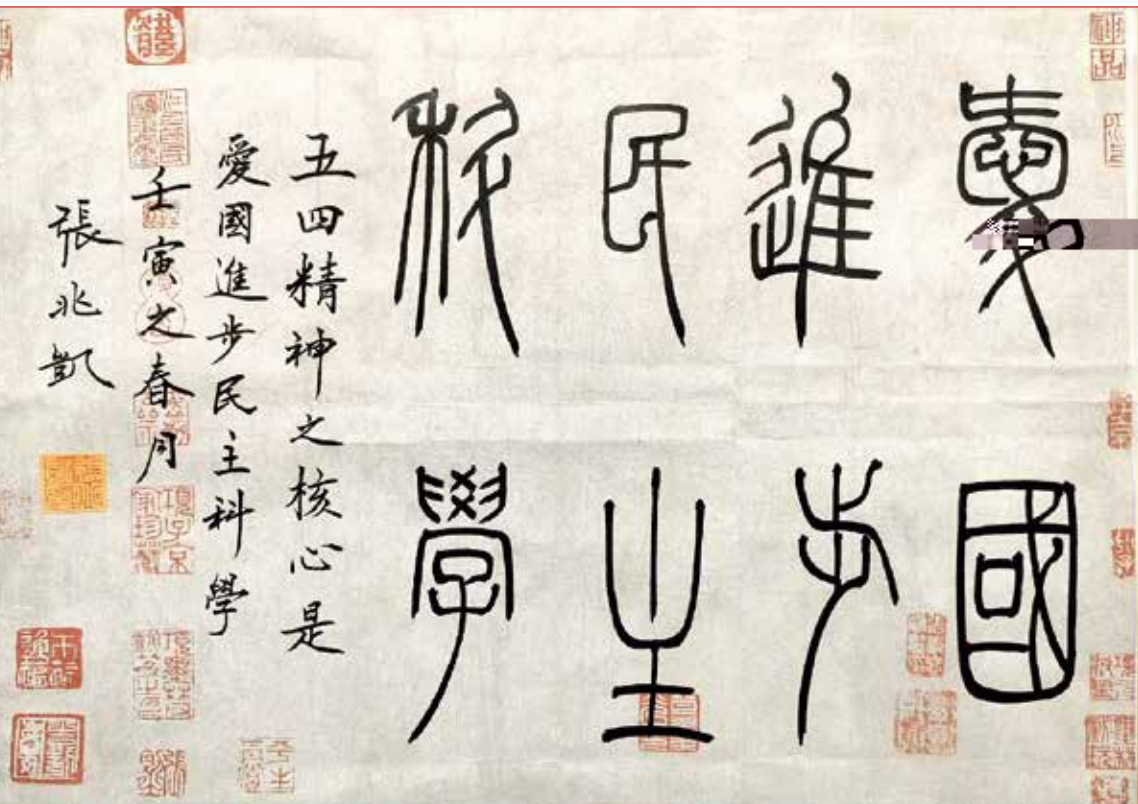 愛國
進步
民主
科學
五四精神之核心是
愛國進步民主科學
壬寅之春月
張兆凱